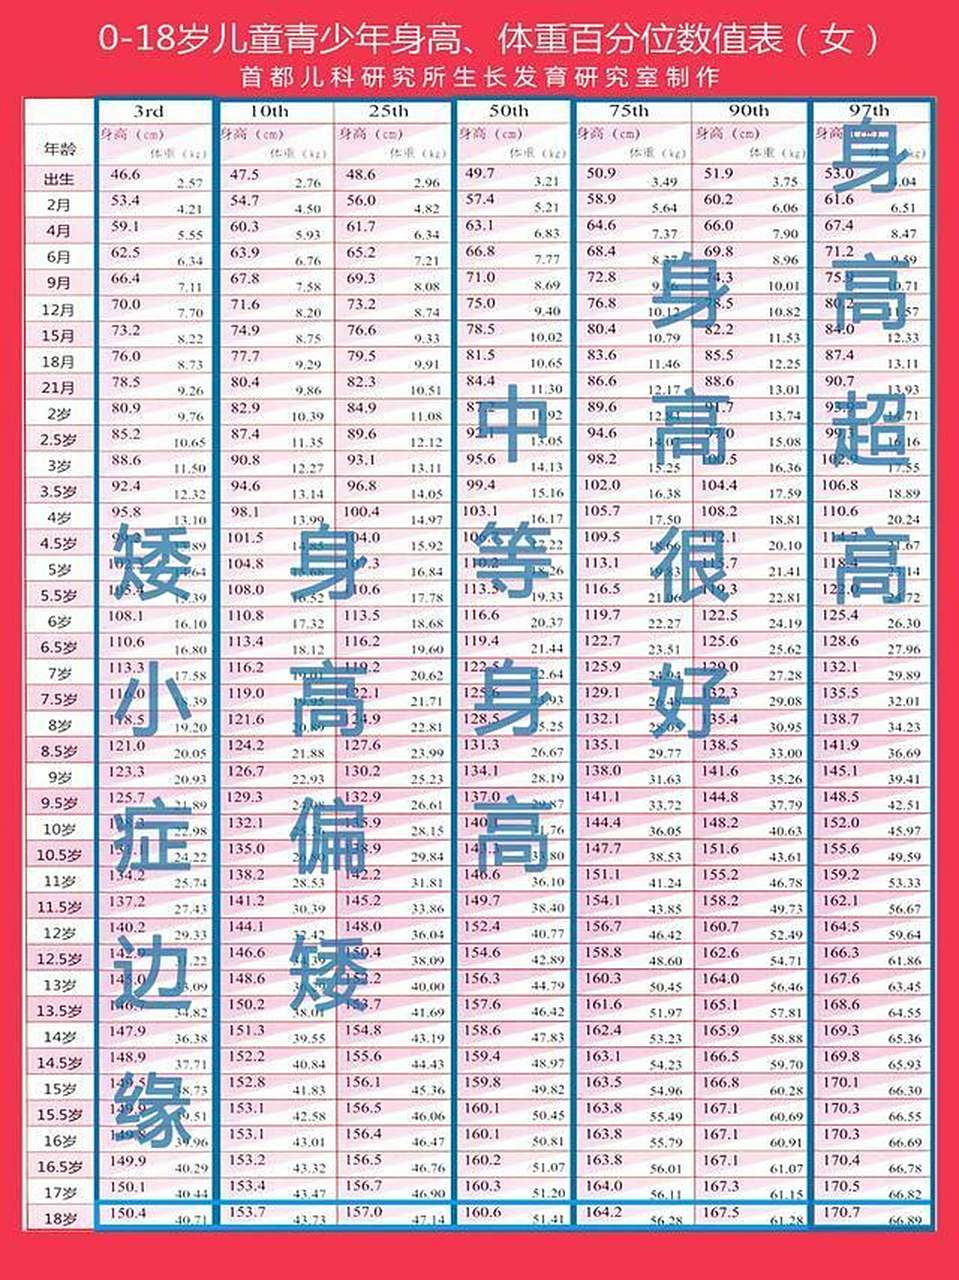 0-18岁儿童青少年身高、体重百分位数值表（女）
首都儿科研究所生长发育研究室制作
3rd 10th 25th 50th 75th 90th 97th
年龄 身高 (cm) 体重 (kg) 身高 (cm) 体重 (kg) 身高 (cm) 体重 (kg) 身高 (cm) 体重 (kg) 身高 (cm) 体重 (kg) 身高 (cm) 体重 (kg) 身高
出生 46.6 2.57 47.5 2.76 48.6 2.96 49.7 3.21 50.9 3.49 51.9 3.75 53.0
2月 53.4 4.21 54.7 4.50 56.0 4.82 57.4 5.21 58.9 5.64 60.2 6.06 61.6 6.51
4月 59.1 5.55 60.3 5.93 61.7 6.34 63.1 6.83 64.6 7.37 66.0 7.90 67.4 8.47
6月 62.5 6.34 63.9 6.76 65.2 7.21 66.8 7.77 68.4 69.8 8.96 71.2
9月 66.4 7.11 67.8 7.58 69.3 8.08 71.0 8.69 72.8 10.01
12月 70.0 7.70 71.6 8.20 73.2 8.74 75.0 9.40 76.8 10.12 10.82
15月 73.2 8.22 74.9 8.75 76.6 9.33 78.5 10.02 80.4 10.79 82.2 11.53 84.0 12.33
18月 76.0 8.73 77.7 9.29 79.5 9.91 81.5 10.65 83.6 11.46 85.5 12.25 87.4 13.11
21月 78.5 9.26 80.4 9.86 82.3 10.51 84.4 11.30 86.6 12.17 88.6 13.01 90.7 13.93
2岁 80.9 9.76 82.9 10.39 84.9 11.08 89.6 13.74
2.5岁 85.2 10.65 87.4 11.35 89.6 12.12 13.05 94.6 15.08
3岁 88.6 11.50 90.8 12.27 93.1 13.11 95.6 14.13 98.2 15.25 16.36 17.55
3.5岁 92.4 12.32 94.6 13.14 96.8 14.05 99.4 15.16 102.0 16.38 104.4 17.59 106.8 18.89
4岁 95.8 13.10 98.1 13.99 100.4 14.97 103.1 16.17 105.7 17.50 108.2 18.81 110.6 20.24
4.5岁 101.5 104.0 15.92 109.5 20.10
5岁 104.8 16.84 113.1 21.41
5.5岁 108.0 16.52 17.78 19.33 116.5 21.06 22.81
6岁 108.1 16.10 110.8 17.32 113.5 18.68 116.6 20.37 119.7 22.27 122.5 24.19 125.4 26.30
6.5岁 110.6 16.80 113.4 18.12 116.2 19.60 119.4 21.44 122.7 23.51 125.6 25.62 128.6 27.96
7岁 113.3 17.58 116.2 119.2 20.62 22.64 125.9 129.0 27.28 132.1 29.89
7.5岁 119.0 21.71 129.1 29.08 135.5 32.01
8岁 118.5 19.20 121.6 22.81 128.5 25.25 132.1 30.95 138.7 34.23
8.5岁 121.0 20.05 124.2 21.88 127.6 23.99 131.3 26.67 135.1 29.77 138.5 33.00 141.9 36.69
9岁 123.3 20.93 126.7 22.93 130.2 25.23 134.1 28.19 138.0 31.63 141.6 35.26 145.1 39.41
9.5岁 125.7 129.3 132.9 26.61 137.0 141.1 33.72 144.8 37.79 148.5 42.51
10岁 22.98 132.1 28.15 144.4 36.05 148.2 40.63 152.0 45.97
10.5岁 24.22 135.0 29.84 147.7 38.53 151.6 43.61 155.6 49.59
11岁 134.2 25.74 138.2 28.53 142.2 31.81 146.6 36.10 151.1 41.24 155.2 46.78 159.2 53.33
11.5岁 137.2 27.43 141.2 30.39 145.2 33.86 149.7 38.40 154.1 43.85 158.2 49.73 162.1 56.67
12岁 140.2 29.33 144.1 32.42 148.0 36.04 152.4 40.77 156.7 46.42 160.7 52.49 164.5 59.64
12.5岁 142.9 146.6 150.4 38.09 154.6 42.89 158.8 48.60 162.6 54.71 166.3 61.86
13岁 148.6 40.00 156.3 44.79 160.3 50.45 164.0 56.46 167.6 63.45
13.5岁 34.82 150.2 38.01 41.69 157.6 46.42 161.6 51.97 165.1 57.81 168.6 64.55
14岁 147.9 36.38 151.3 39.55 154.8 43.19 158.6 47.83 162.4 53.23 165.9 58.88 169.3 65.36
14.5岁 148.9 37.71 152.2 40.84 155.6 44.43 159.4 48.97 163.1 54.23 166.5 59.70 169.8 65.93
15岁 152.8 41.83 156.1 45.36 159.8 49.82 163.5 54.96 166.8 60.28 170.1 66.30
15.5岁 153.1 42.58 156.5 46.06 160.1 50.45 163.8 55.49 167.1 60.69 170.3 66.55
16岁 153.1 43.01 156.4 46.47 160.1 50.81 163.8 55.79 167.1 60.91 170.3 66.69
16.5岁 149.9 40.29 153.2 43.32 156.5 46.76 160.2 51.07 163.8 56.01 167.1 61.07 170.4 66.78
17岁 150.1 40.44 153.4 43.47 156.7 46.90 160.3 51.20 164.0 56.11 167.3 61.15 170.5 66.82
18岁 150.4 40.71 153.7 43.73 157.0 47.14 160.6 51.41 164.2 56.28 167.5 61.28 170.7 66.89
矮小症边缘
身高偏矮
中等身高
身高很好
身高超高